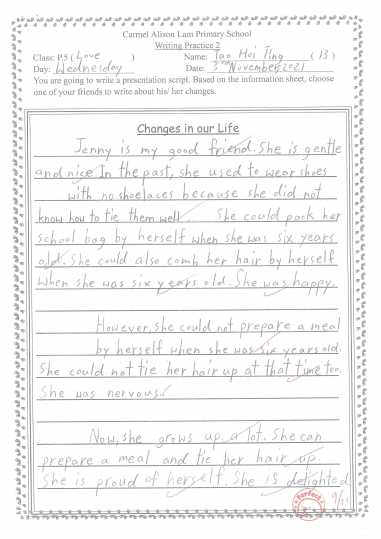 Carmel Alison Lam Primary School
Writing Practice 2
Class: P.5 ( Love ) Name: Tao Hoi Ting ( 13 )
Day: Wednesday Date: 3rd November, 2021
You are going to write a presentation script. Based on the information sheet, choose
one of your friends to write about his/ her changes.
Changes in our Life
Jenny is my good friend. She is gentle
and nice. In the past, she used to wear shoes
with no shoelaces because she did not
know how to tie them well. She could pack her
school bag by herself when she was six years
old. She could also comb her hair by herself
when she was six years old. She was happy.
However, she could not prepare a meal
by herself when she was six years old.
She could not tie her hair up at that time too.
She was nervous.
Now, she grows up a lot. She can
prepare a meal and tie her hair up.
She is proud of herself. She is delighted
Perfect
9/11